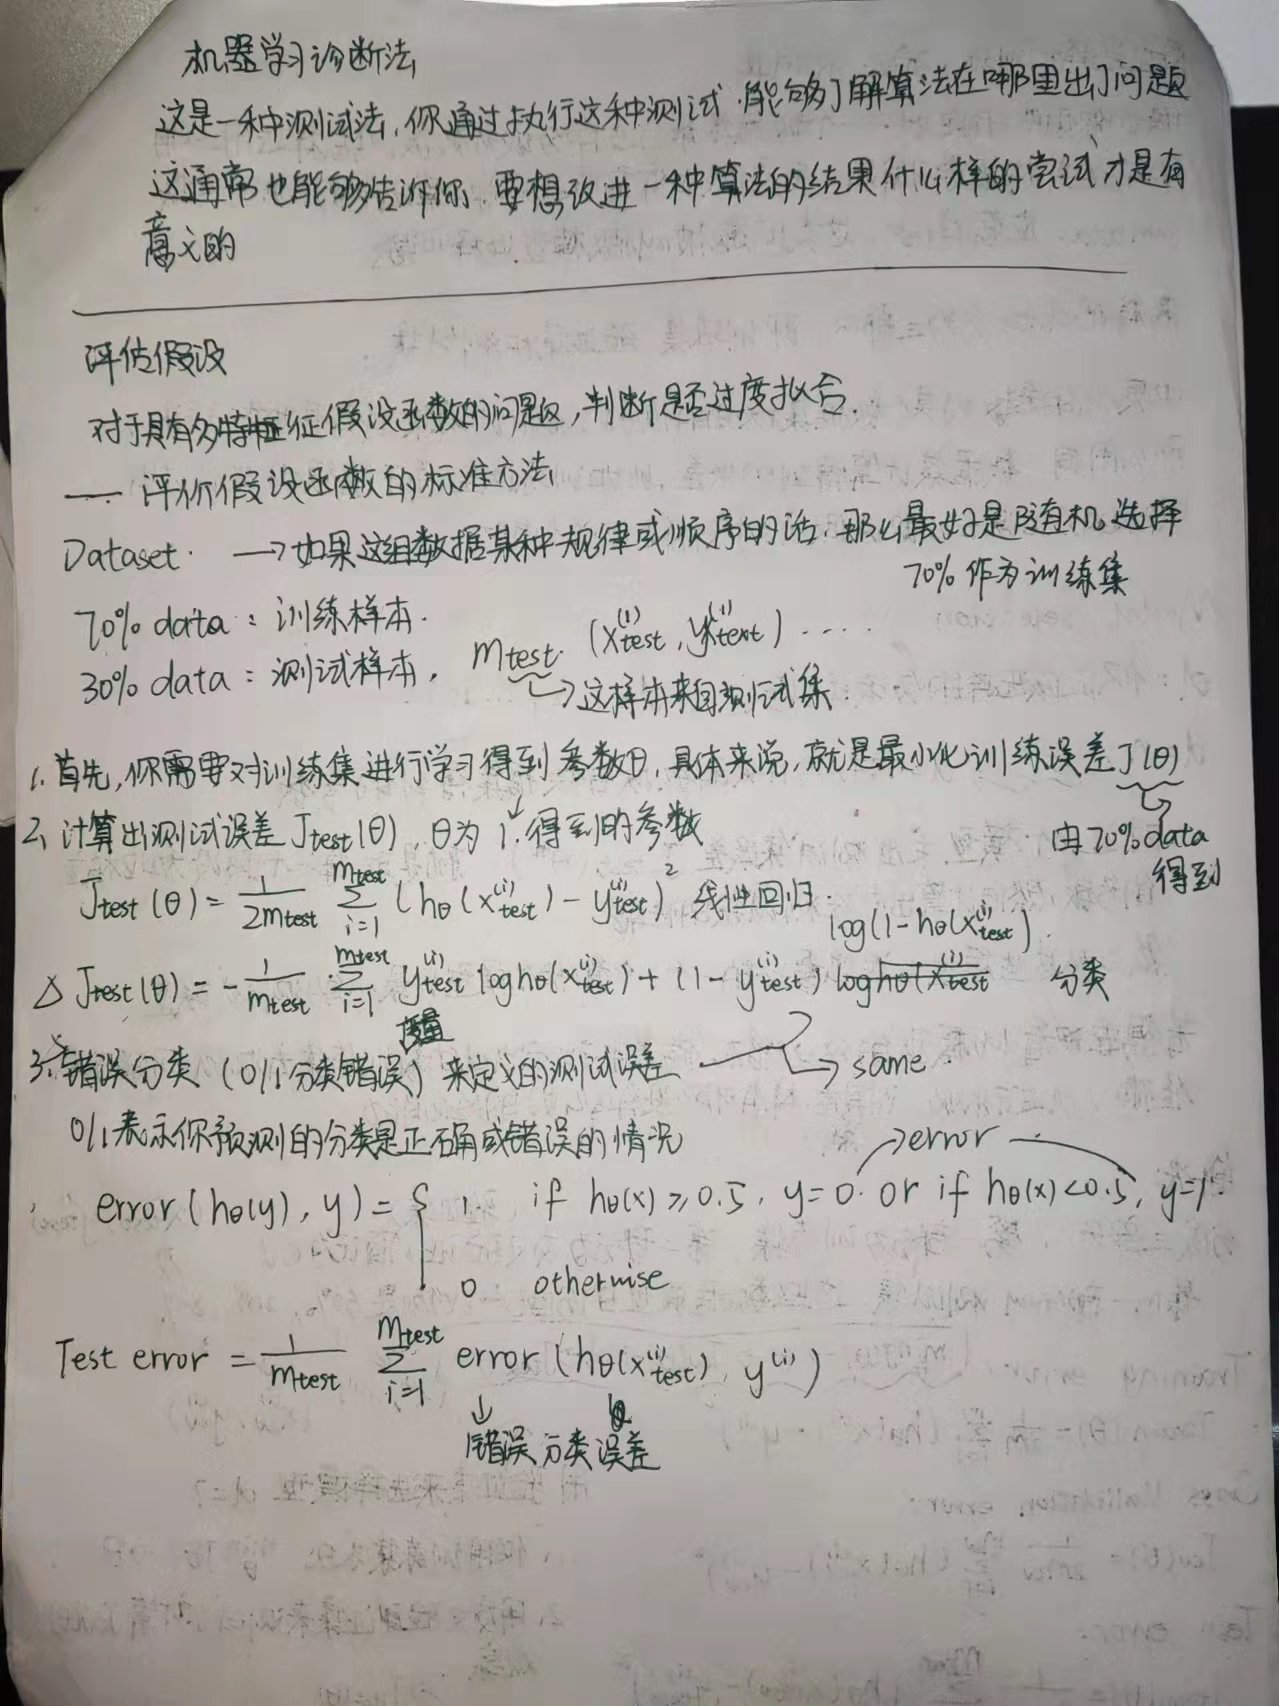 机器学习诊断法
这是一种测试法，你通过执行这种测试，能够了解算法在哪里出了问题
这通常也能够告诉你，要想改进一种算法的结果什么样的尝试，才是有
意义的
评估假设
对于具有多特征假设函数的问题，判断是否过度拟合.
—— 评价假设函数的标准方法
Dataset. → 如果这组数据某种规律或顺序的话，那么最好是随机选择
70% 作为训练集
70% data : 训练样本.
30% data : 测试样本. mtest. (x^(i)test, y^(i)text) ....
→ 这样本来自测试集.
1. 首先，你需要对训练集进行学习得到参数θ，具体来说，就是最小化训练误差J(θ)
2. 计算出测试误差 Jtest(θ), θ为 1. 得到的参数
由70% data
得到
Jtest(θ) = 1/2mtest Σ_{i=1}^{mtest} (hθ(x^(i)test) - y^(i)test)^2 线性回归.
log(1 - hθ(x^(i)test).
△ Jtest(θ) = -1/mtest Σ_{i=1}^{mtest} y^(i)test log hθ(x^(i)test) + (1 - y^(i)test) log hθ(x^(i)test 分类
度量
3. 错误分类 (0/1 分类错误) 来定义的测试误差 → same.
0/1 表示你预测的分类是正确或错误的情况
→ error
error(hθ(y), y) = { 1. if hθ(x) ≥ 0.5, y=0. or if hθ(x) < 0.5, y=1.
0 otherwise
Test error = 1/mtest Σ_{i=1}^{mtest} error(hθ(x^(i)test), y^(i))
↓
错误分类误差